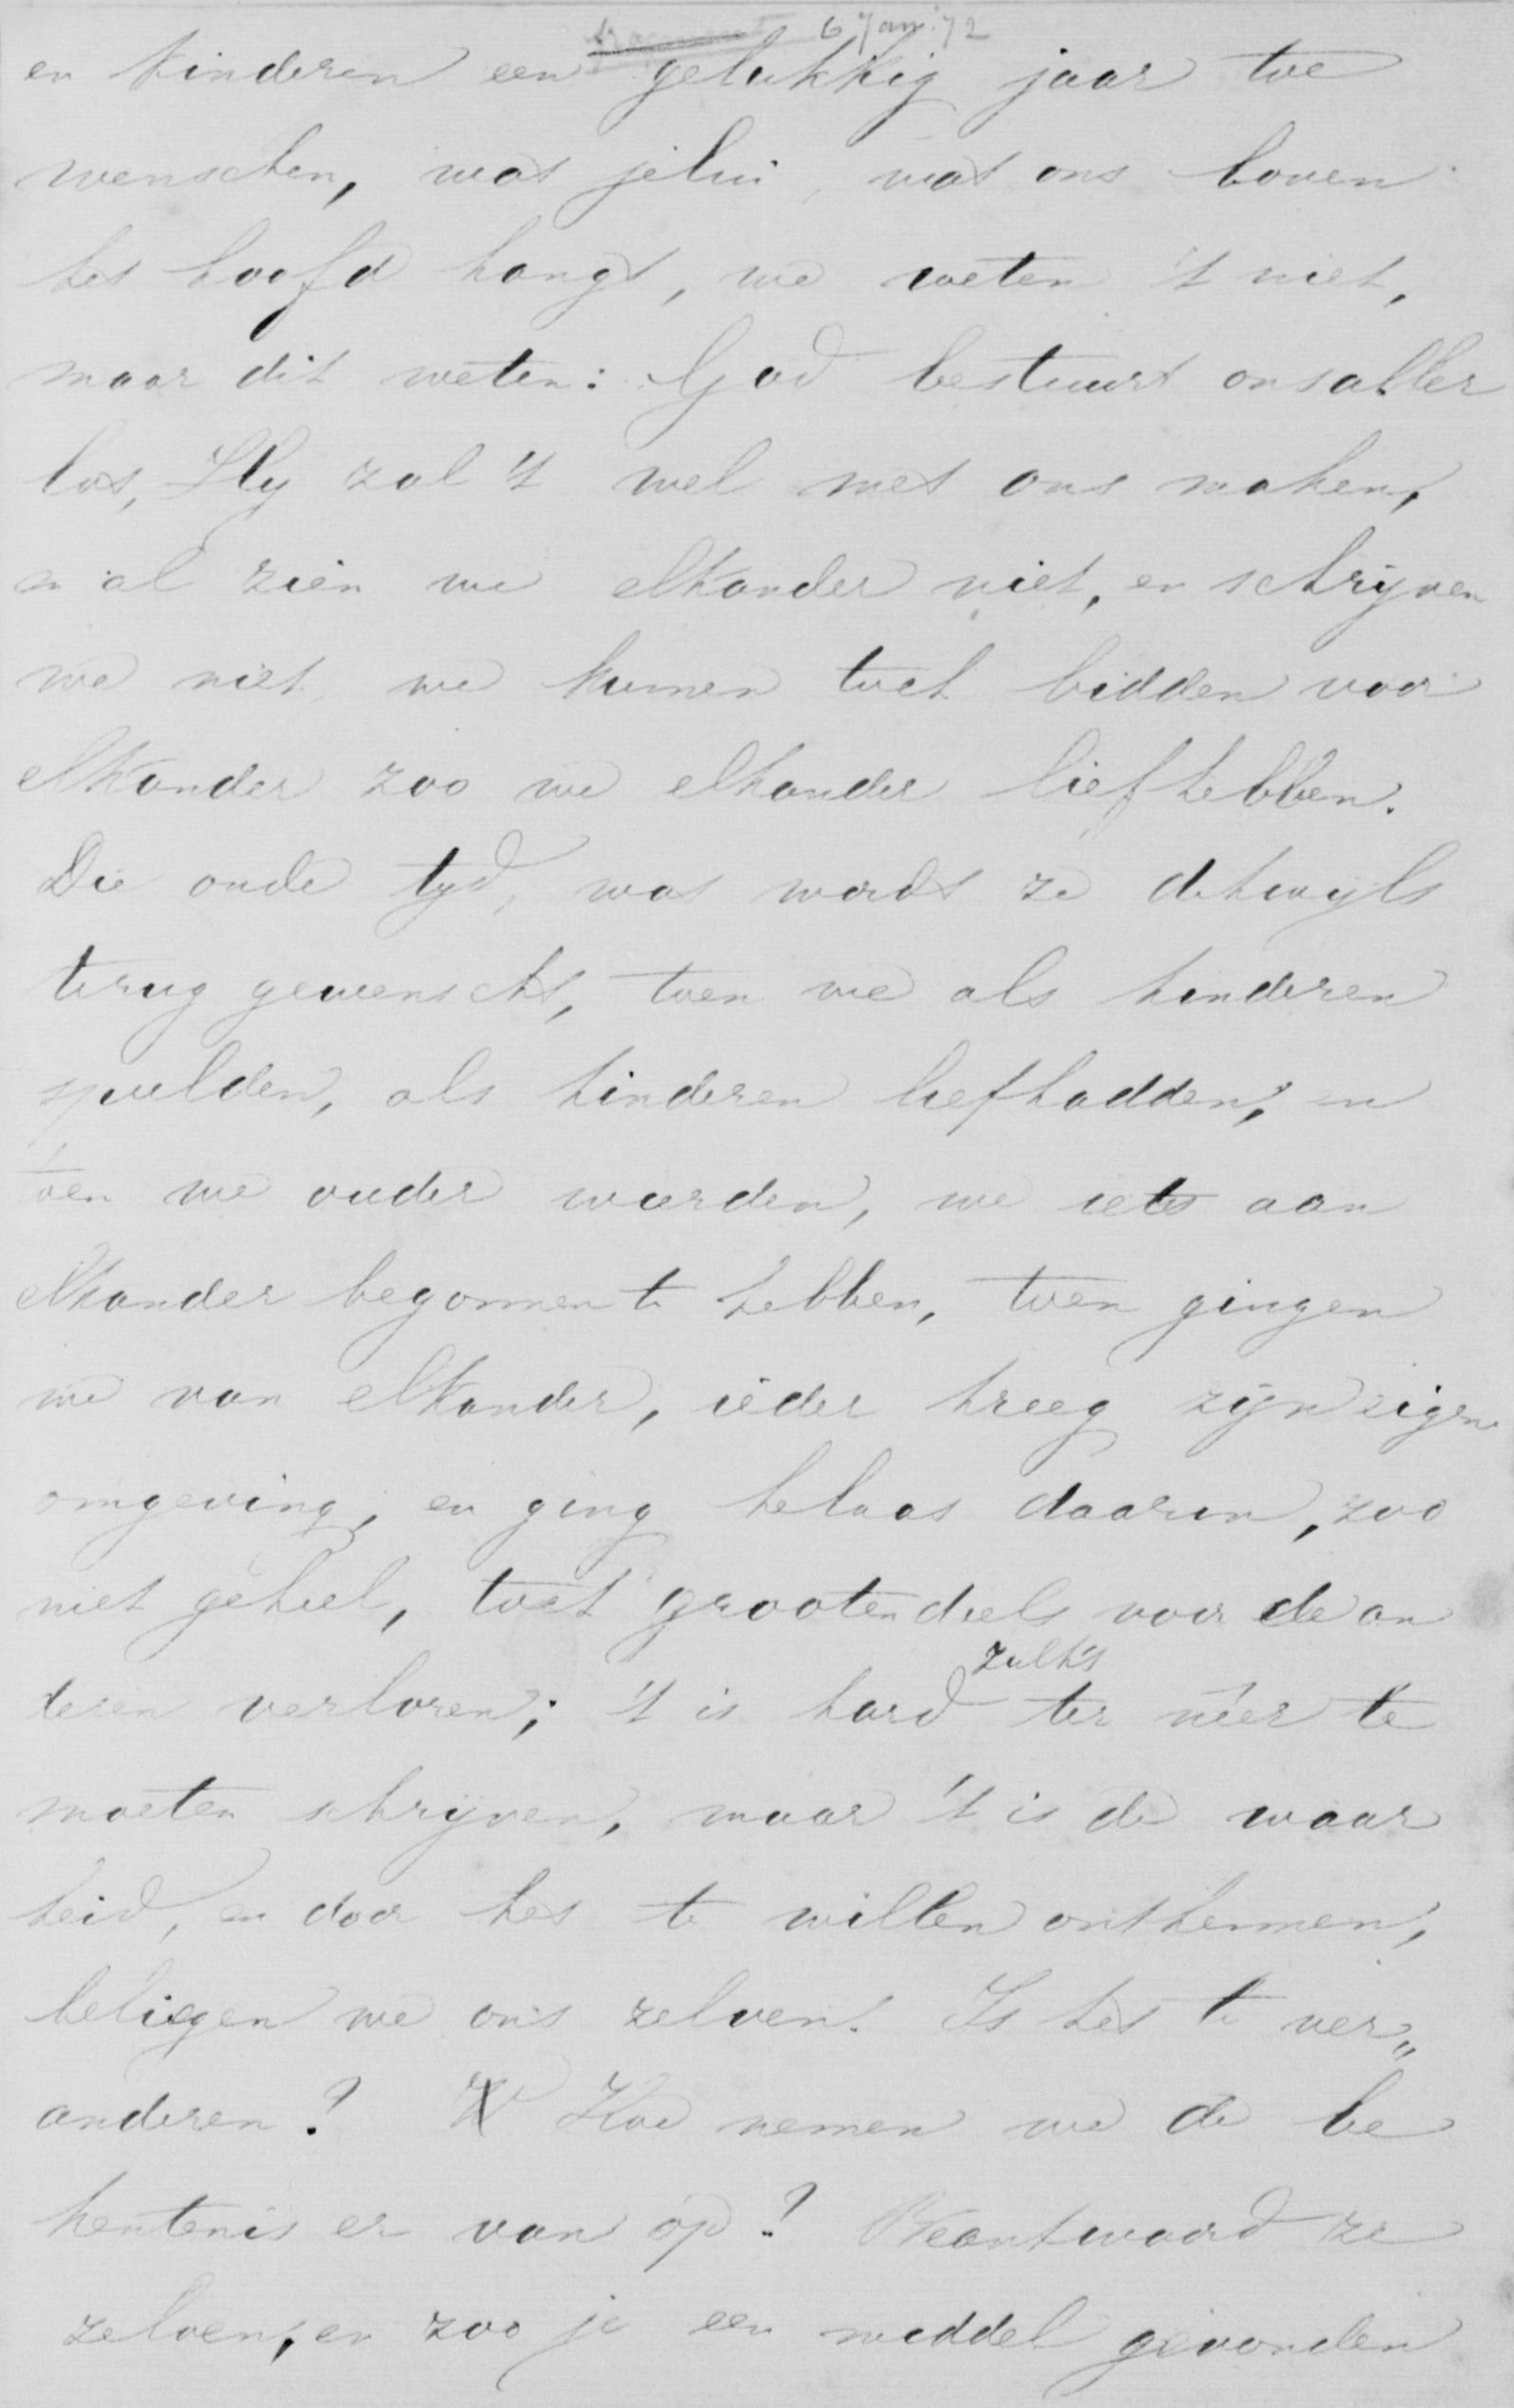 6 Jan '72
en kinderen een gelukkig jaar toe
wenschen, wat jelui, wat ons boven
het hoofd hangt, we weten 't niet,
maar dit weten: God bestuurt ons aller
lot, Hy zal 't wel met ons maken,
en al zien we elkander niet, en schrijven
we niet, we kunnen toch bidden voor
elkander zoo we elkander liefhebben.
Die oude tyd, wat wordt ze dikwyls
terug gewenscht, toen we als kinderen
speelden, als kinderen liefhadden, en
toen we ouder wierden, we iets aan
elkander begonnen te hebben, toen gingen
we van elkander, ieder kreeg zijn eigen
omgeving, en ging helaas daarin, zoo
niet geheel, toch grootendeels voor de an
deren verloren; 't is hard zulks ter neer te
moeten schrijven, maar 't is de waar
heid, en door het te willen ontkennen,
beliegen we ons zelven. Is het te ver„
anderen? Hoe nemen we de be
kentenis er van op? Beantwoord ze
zelven, en zoo je een middel gevonden